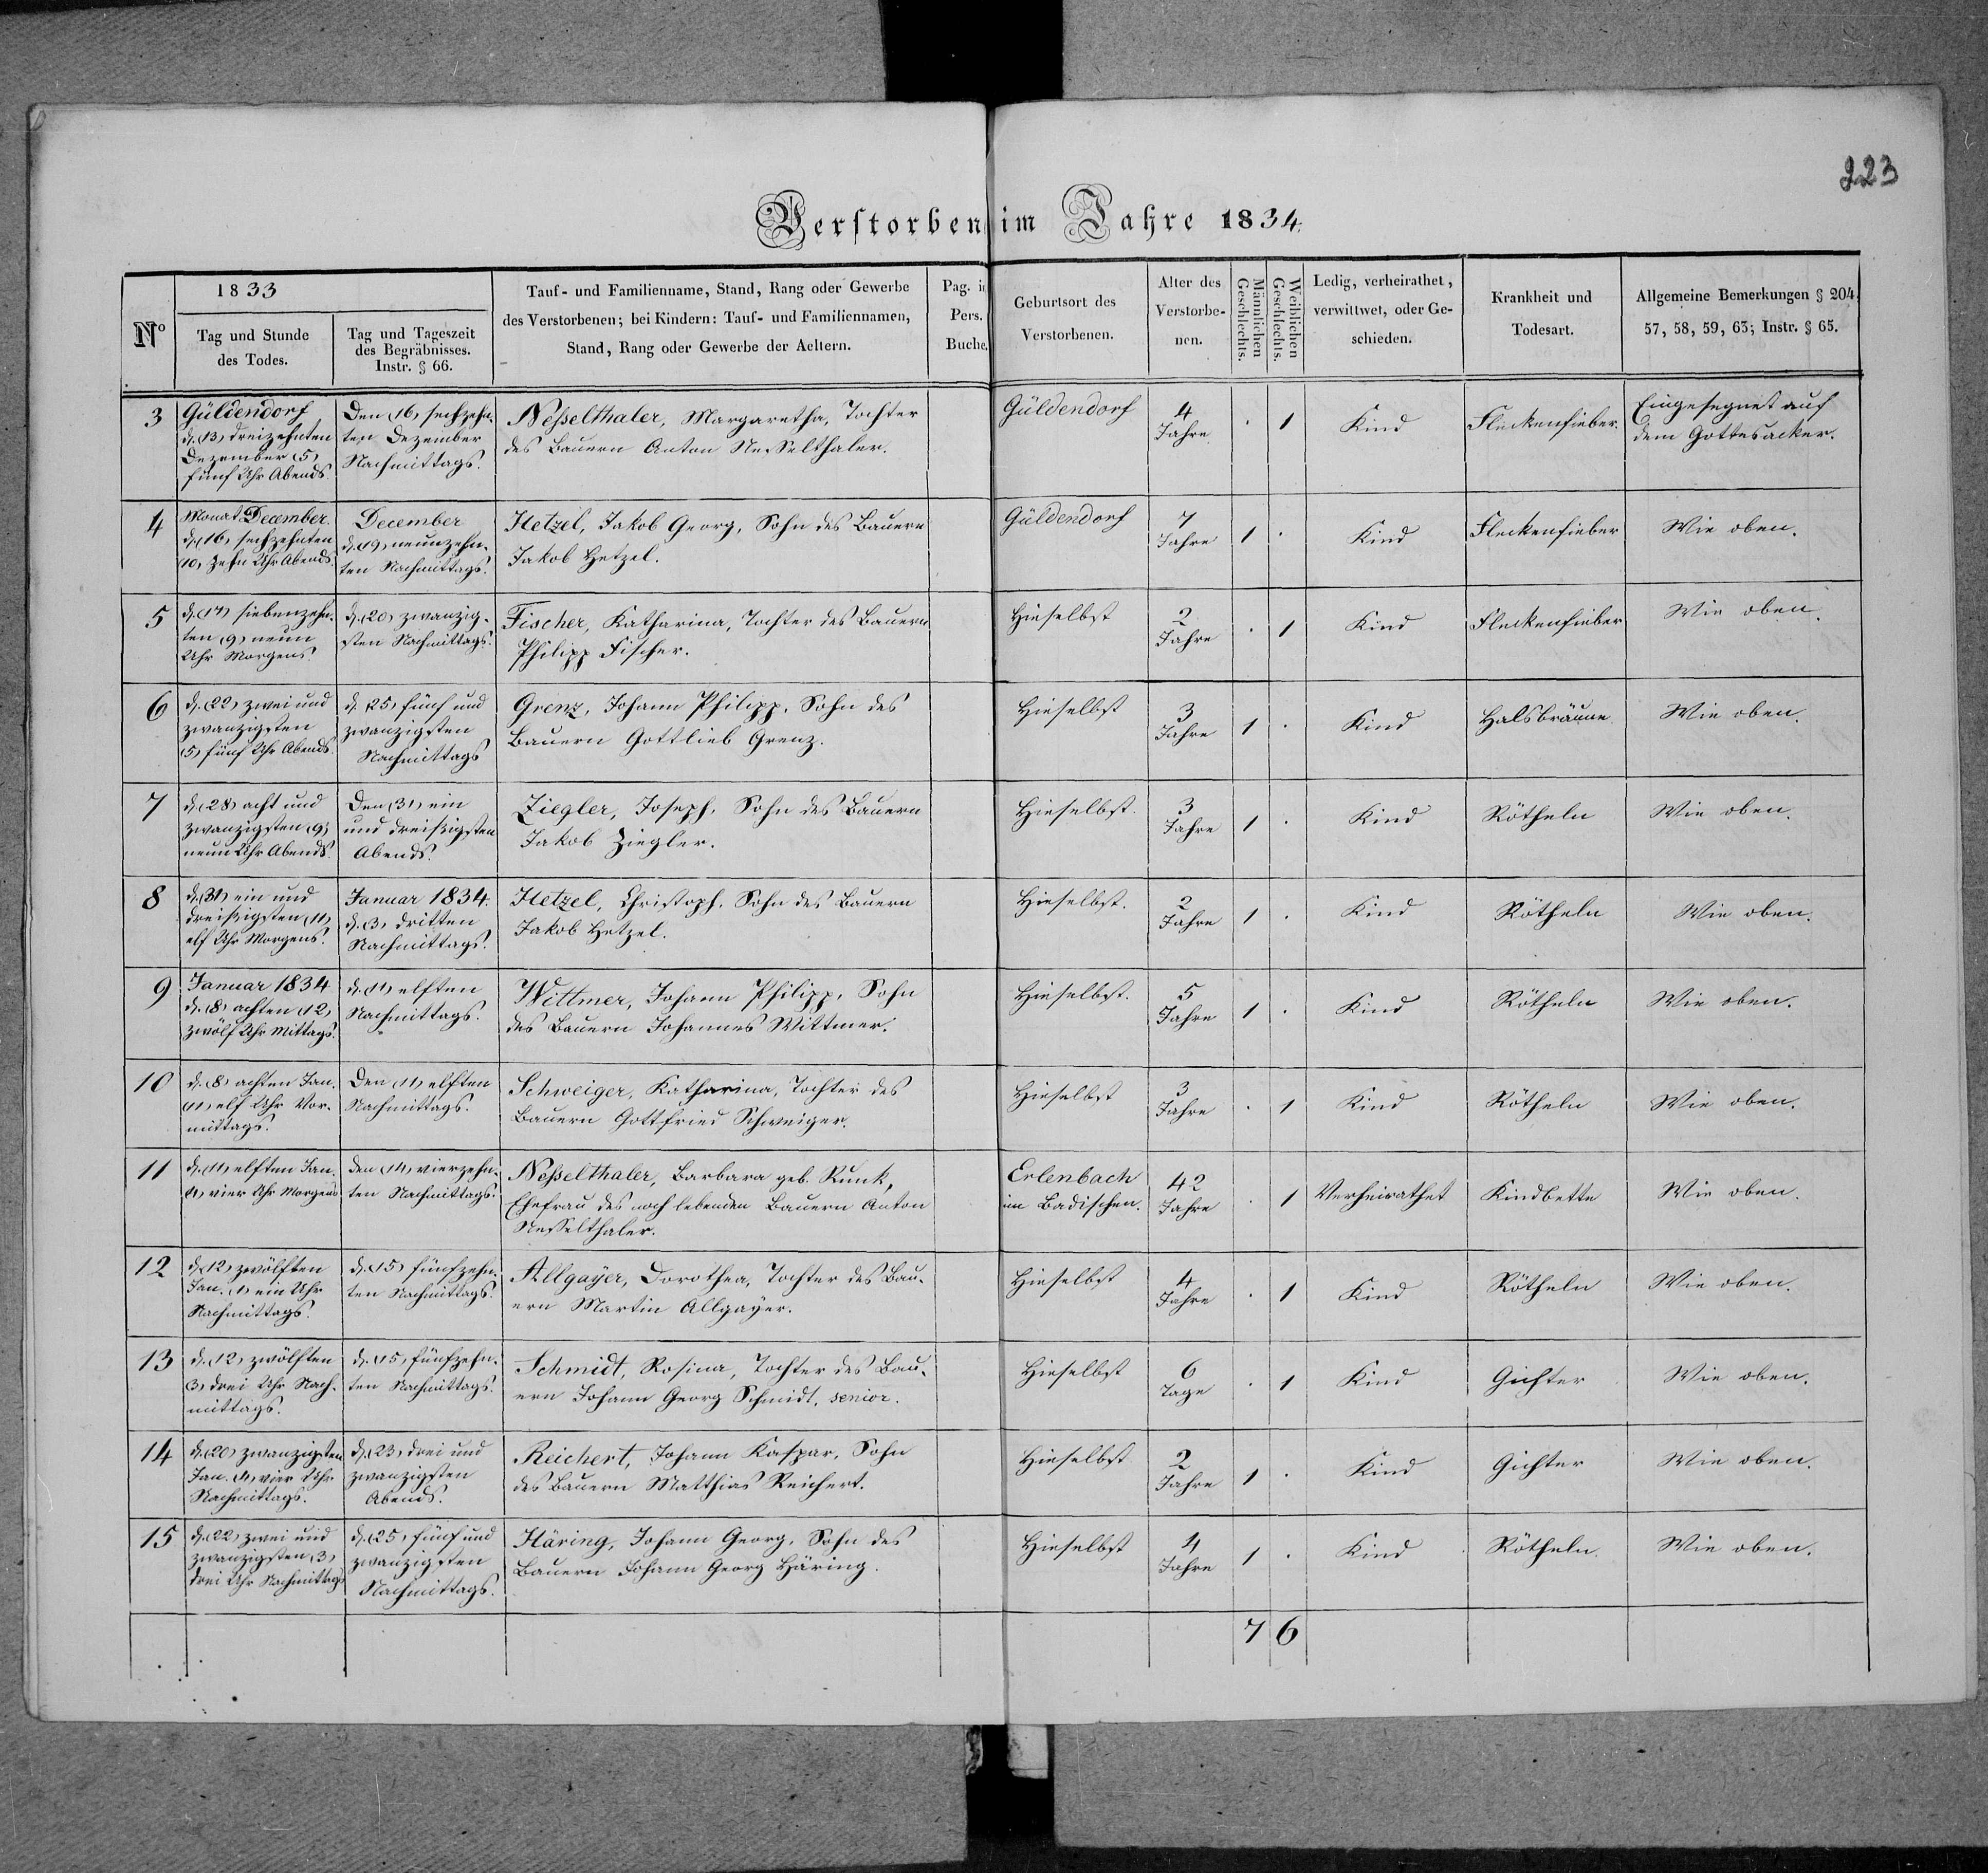 223
Verstorben im Jahre 1834.
N°
1833
Tag und Stunde
des Todes.
Tag und Tageszeit
des Begräbnisses.
Instr. § 66.
Tauf- und Familienname, Stand, Rang oder Gewerbe
des Verstorbenen; bei Kindern: Tauf- und Familiennamen,
Stand, Rang oder Gewerbe der Aeltern.
Pag. i
Pers.
Buche.
Geburtsort des
Verstorbenen.
Alter des
Verstorbe-
nen.
Männlichen
Geschlechts.
Weiblichen
Geschlechts.
Ledig, verheirathet,
verwittwet, oder Ge-
schieden.
Krankheit und
Todesart.
Allgemeine Bemerkungen § 204.
57, 58, 59, 63; Instr. § 65.
3
Güldendorf
d. (13) dreizehnten
Dezember (5)
fünf Uhr Abends.
Den (16) sechzehn-
ten Dezember
Nachmittags.
Neßelthaler, Margaretha, Tochter
des Bauern Anton Nesselthaler.
Güldendorf
4
Jahre
. 1
Kind
Fleckenfieber.
Eingesegnet auf
dem Gottesacker.
4
Monat December.
d. (16) sechzehnten
(10) zehn Uhr Abends.
December
d. (19) neunzehn-
ten Nachmittags.
Hetzel, Jakob Georg, Sohn des Bauern
Jakob Hetzel.
Güldendorf
7
Jahre
1 .
Kind
Fleckenfieber
Wie oben.
5
d. (17) siebenzehn-
ten (9) neun
Uhr Morgens.
d. (20) zwanzig-
sten Nachmittags.
Fischer, Katharina, Tochter des Bauern
Philipp Fischer.
Hieselbst
2
Jahre
. 1
Kind
Fleckenfieber
Wie oben.
6
d. (22) zwei und
zwanzigsten
(5) fünf Uhr Abends.
d. (25) fünf und
zwanzigsten
Nachmittags
Grenz, Johann Philipp, Sohn des
Bauern Gottlieb Grenz.
Hieselbst
3
Jahre
1 .
Kind
Halsbräune.
Wie oben.
7
d. (28) acht und
zwanzigsten (9)
neun Uhr Abends.
Den (31) ein
und dreißigsten
Abends.
Ziegler, Joseph, Sohn des Bauern
Jakob Ziegler.
Hieselbst.
3
Jahre
1 .
Kind
Rötheln
Wie oben.
8
d. (31) ein und
dreißigsten (11)
elf Uhr Morgens.
Januar 1834.
d. (3) dritten
Nachmittags.
Hetzel, Christoph, Sohn des Bauern
Jakob Hetzel.
Hieselbst.
2
Jahre
1 .
Kind
Rötheln
Wie oben.
9
Januar 1834
d. (8) achten (12)
zwölf Uhr Mittags.
d. (11) elften
Nachmittags.
Wittmer, Johann Philipp, Sohn
des Bauern Johannes Wittmer.
Hieselbst.
5
Jahre
1 .
Kind
Rötheln
Wie oben.
10
d. (8) achten Jan.
(11) elf Uhr Vor-
mittags.
Den (11) elften
Nachmittags.
Schweiger, Katharina, Tochter des
Bauern Gottfried Schweiger.
Hieselbst
3
Jahre
. 1
Kind
Rötheln
Wie oben.
11
d. (11) elften Jan.
(4) vier Uhr Morgens
den (14) vierzehn-
ten Nachmittags.
Neßelthaler, Barbara geb. Runk,
Ehefrau des noch lebenden Bauern Anton
Nesselthaler.
Erlenbach
im Badischen.
42
Jahre
. 1
Verheirathet
Kindbette
Wie oben.
12
d. (12) zwölften
Jan. (1) ein Uhr
Nachmittags.
d. (15) fünfzehn-
ten Nachmittags.
Allgayer, Dorothea, Tochter des Bau-
ern Martin Allgayer.
Hieselbst
4
Jahre
. 1
Kind
Rötheln
Wie oben.
13
d. (12) zwölften
(3) drei Uhr Nach-
mittags.
d. (15) fünfzehn-
ten Nachmittags.
Schmidt, Rosina, Tochter des Bau-
ern Johann Georg Schmidt, senior.
Hieselbst
6
Tage
. 1
Kind
Gichter
Wie oben.
14
d. (20) zwanzigsten
Jan. (4) vier Uhr
Nachmittags.
d. (23) drei und
zwanzigsten
Abends.
Reichert, Johann Kaspar, Sohn
des Bauern Matthias Reichert.
Hieselbst
2
Jahre
1 .
Kind
Gichter
Wie oben.
15
d. (22) zwei und
zwanzigsten (3)
drei Uhr Nachmittags
d. (25) fünf und
zwanzigsten
Nachmittags.
Häring, Johann Georg, Sohn des
Bauern Johann Georg Häring.
Hieselbst
4
Jahre
1 .
Kind
Rötheln
Wie oben.
7 6